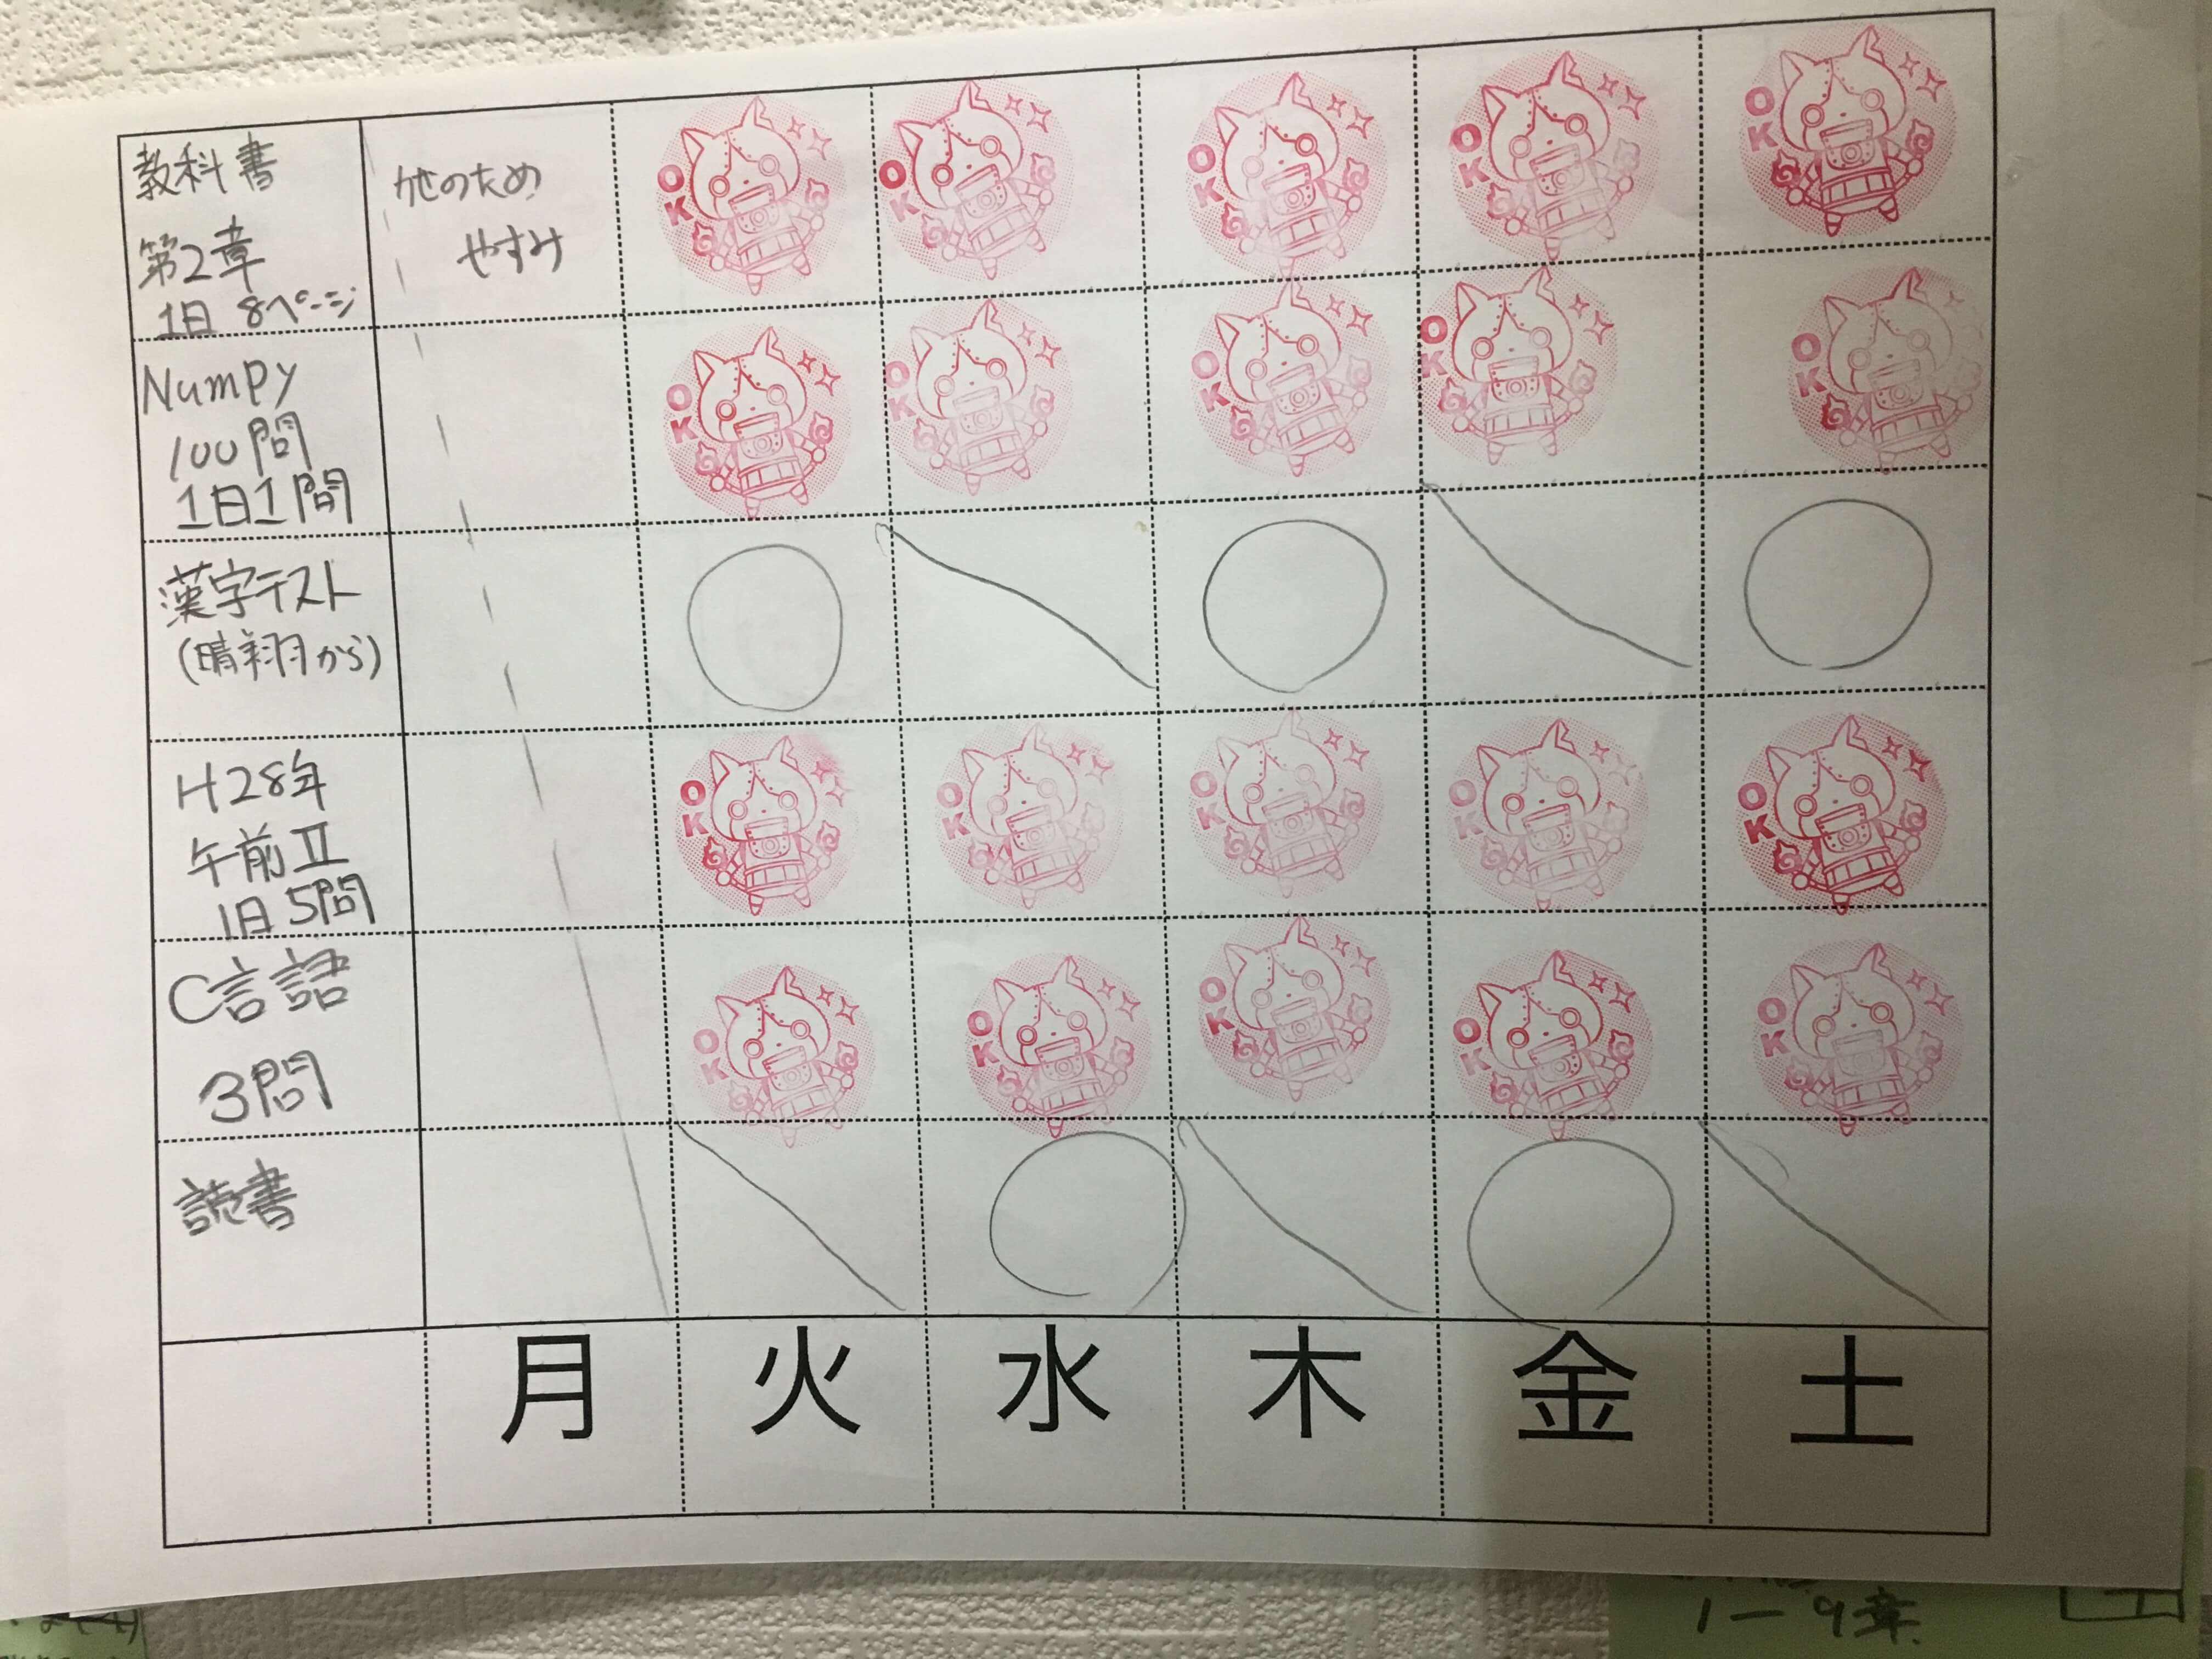 教科書
第2章
1日 8ページ
他のため
やすみ
OK
OK
OK
OK
OK
NumPy
100問
1日1問
OK
OK
OK
OK
OK
漢字テスト
(晴翔から)
H28年
午前Ⅱ
1日5問
OK
OK
OK
OK
OK
C言語
3問
OK
OK
OK
OK
OK
読書
月 火 水 木 金 土
1ー9章